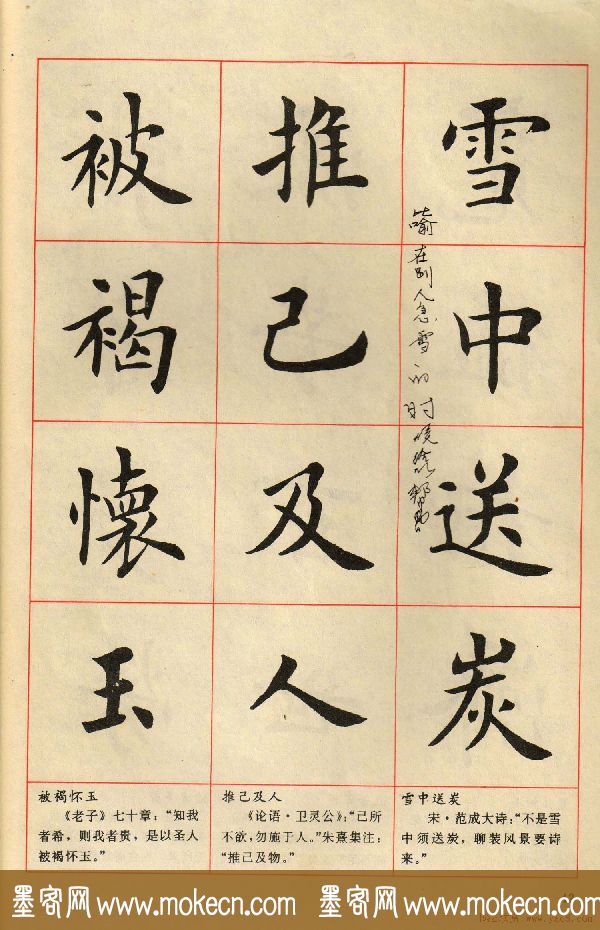 雪中送炭
推己及人
被褐懷玉
喻在别人急需的时
雪中送炭
宋·范成大诗：“不是雪
中须送炭，聊装风景要诗
来。”
推己及人
《论语·卫灵公》：“己所
不欲，勿施于人。”朱熹集注：
“推己及物。”
被褐怀玉
《老子》七十章：“知我
者希，则我者贵，是以圣人
被褐怀玉。”
墨客网 www.mokecn.com 墨客网 www.mokecn.com